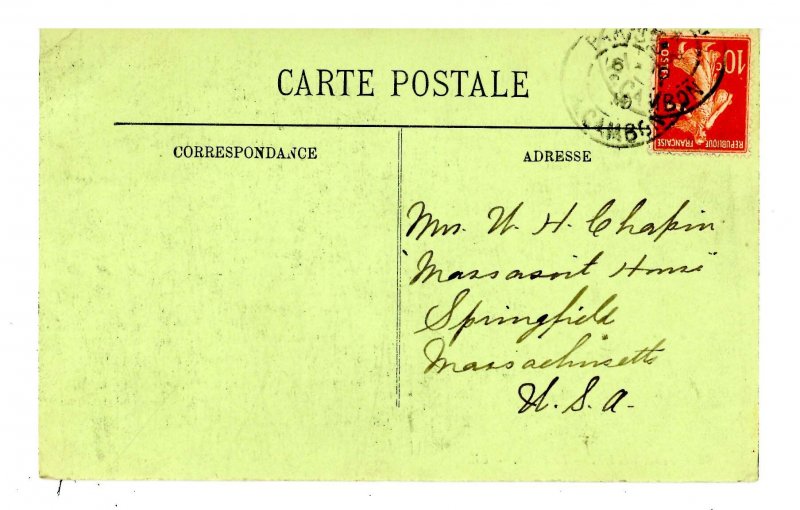 CARTE POSTALE
CORRESPONDANCE
ADRESSE
10c
POSTES
REPUBLIQUE FRANÇAISE
CAMBON
Mrs. W. H. Chapin
"Massasoit House"
Springfield
Massachusetts
U. S. A.